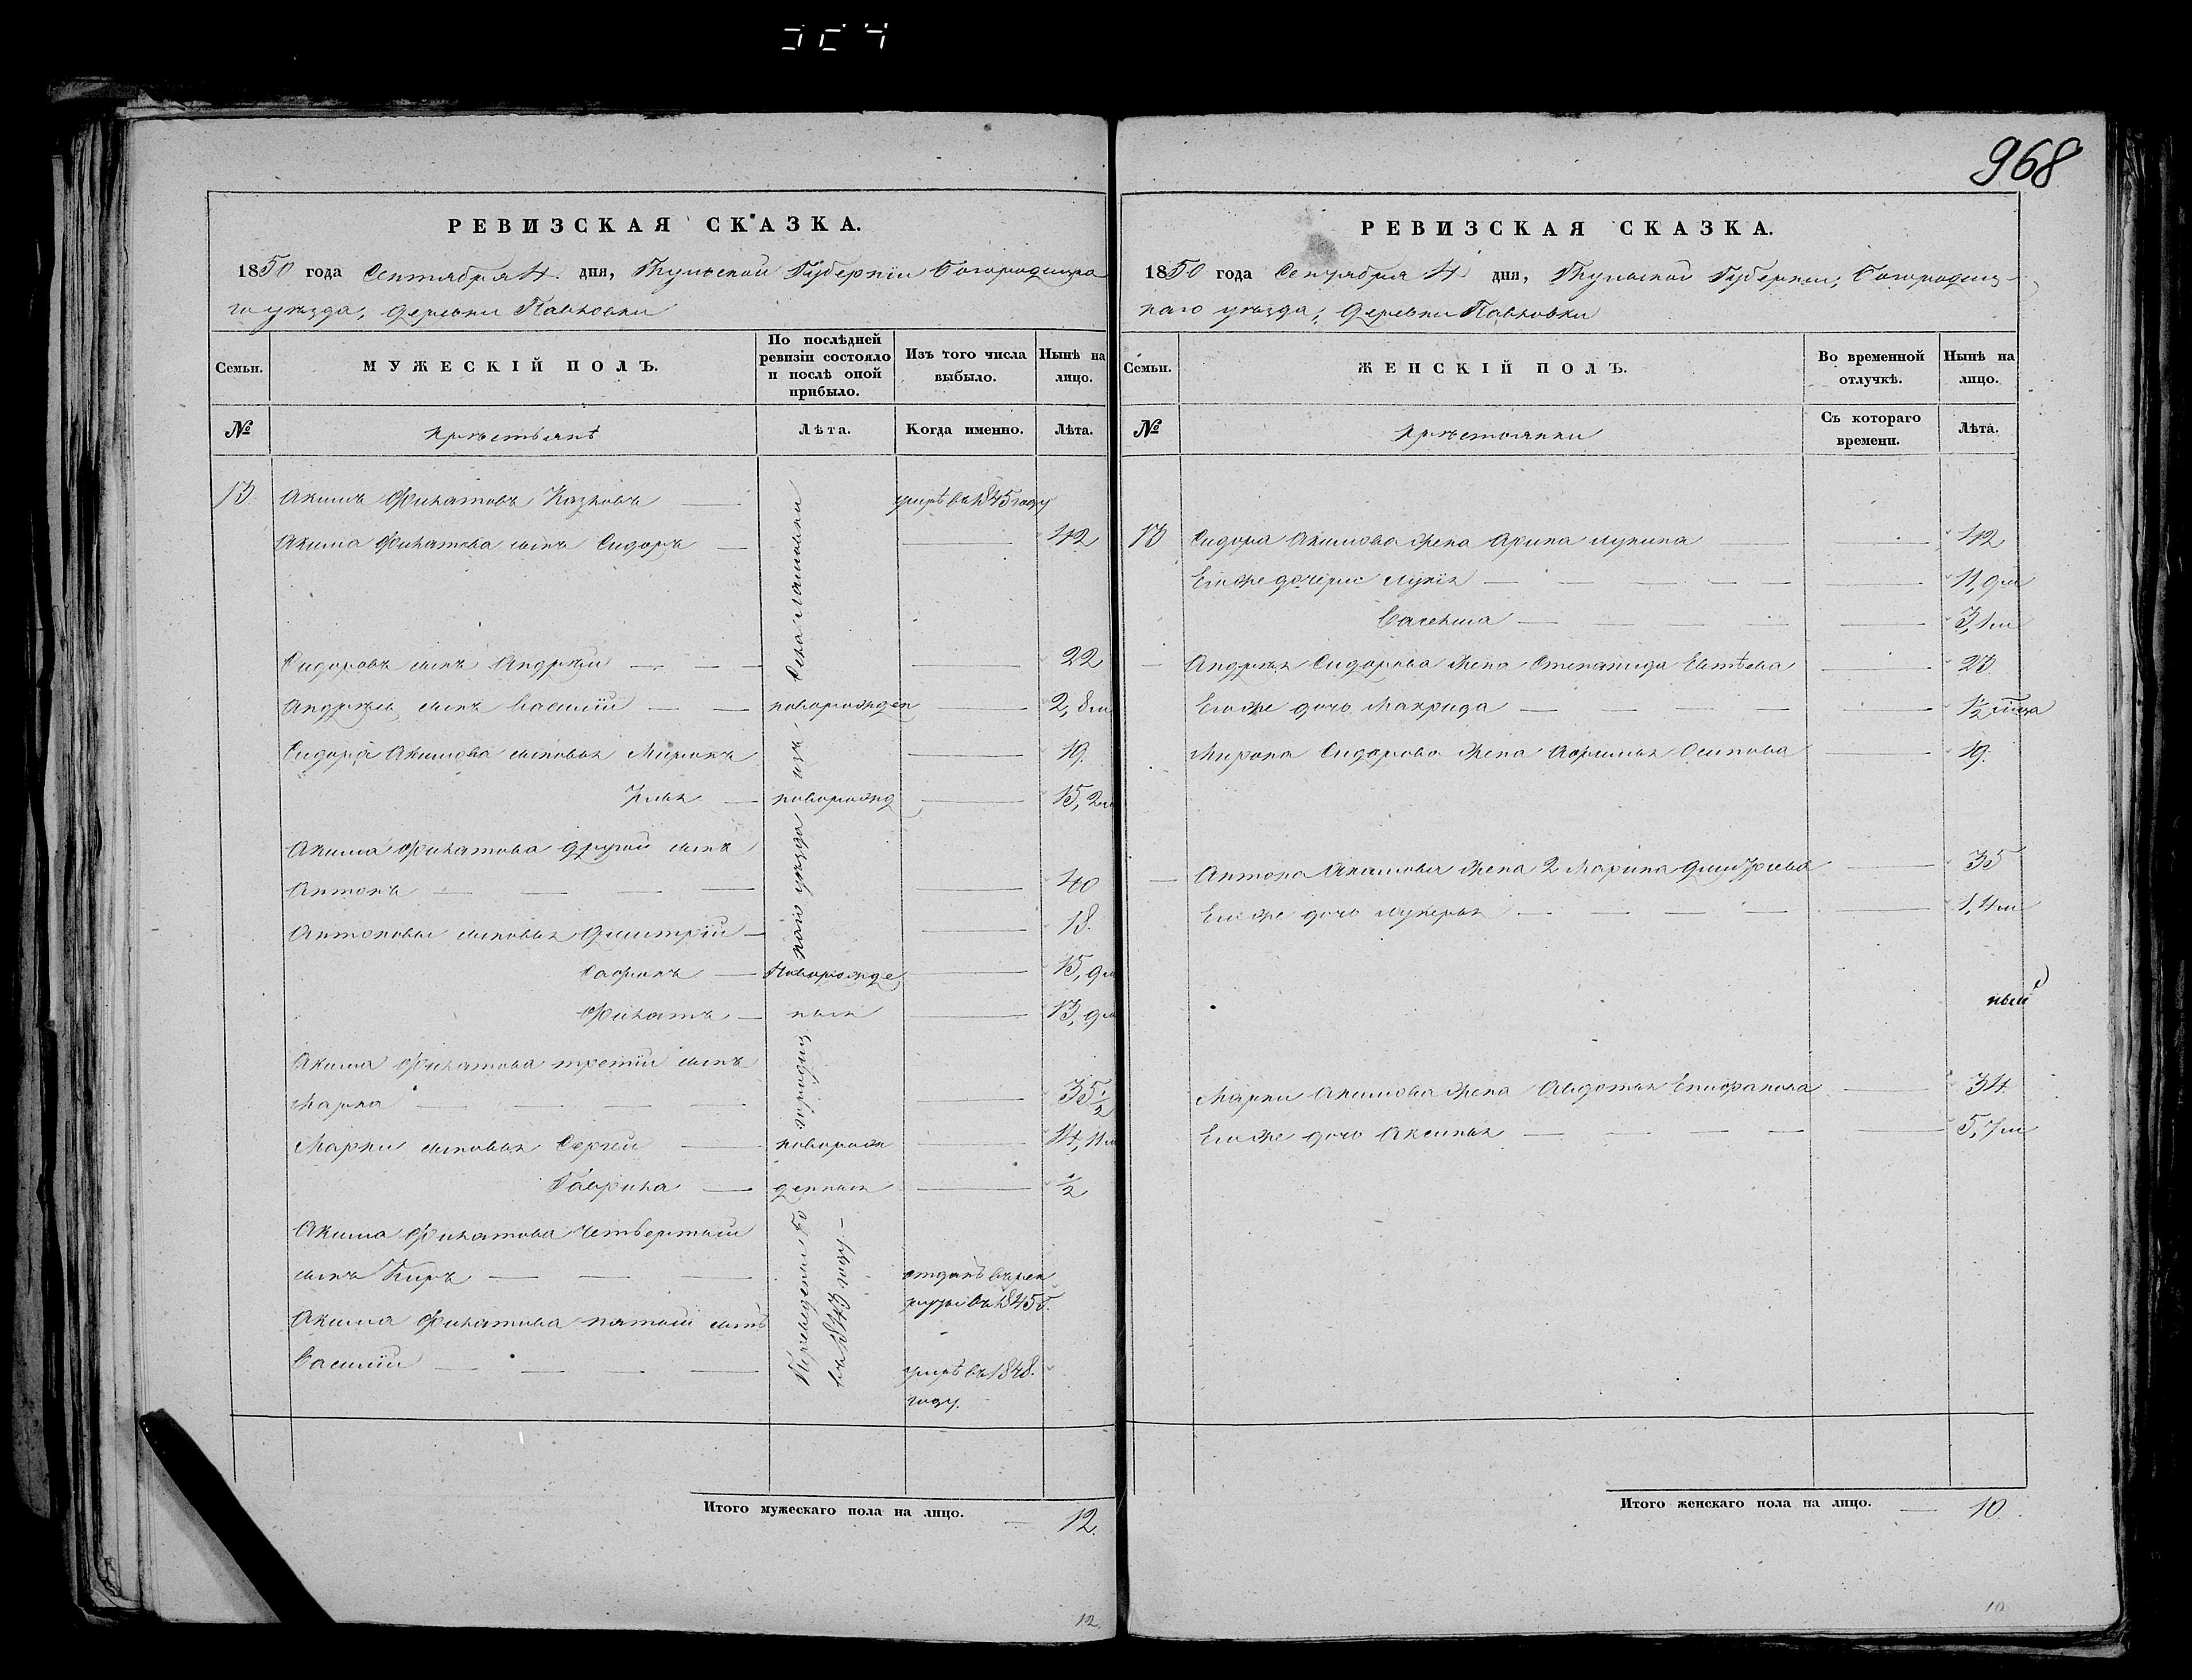 968
РЕВИЗСКАЯ СКАЗКА.
1850 года Сентября 4. дня, Тульской Губерніи Богородицка
го уѣзда, деревни Павловки
Семьи.
МУЖЕСКІЙ ПОЛЪ.
По послѣдней ревизіи состояло и послѣ оной прибыло.
Изъ того числа выбыло.
Нынѣ на лицо.
№
Крѣстьянѣ
Лѣта.
Когда именно.
Лѣта.
13. Акимъ Филатовъ Козловъ — умрѣ въ 1845 году
Акима Филатова сынъ Сидоръ — 42
Сидоровъ сынъ Андрѣй — 22
Андрѣя сынъ Василій — новорожден — 2, 8 м
Сидора Акимова сыновья Миронъ — 19.
Илья — новорожд — 15, 2 м
Акима Филатова другой сынъ
Антонъ — 40
Антоновы сыновья Дмитрій — 18.
Сафонъ — Новорожде — 15, 9 м
Филатъ — ныя — 13, 9 м
Акима Филатова третій сынъ
Марка — 35 1/2
Марки сыновья Сергей — новорож — 14, 11 м
Гаврила — денныя — 1/2
Акима Филатова Четвертый
сынъ Киръ — отданъ въ рек
руты въ 1845 г.
Акима Филатова пятый сынъ
Василій — умрѣ въ 1848.
году.
Переведены Бо
городиц
каго уѣзда
изъ
Села
въ 1843 году. —
Итого мужескаго пола на лицо. — 12.
12
РЕВИЗСКАЯ СКАЗКА.
1850 года Сентября 4 дня, Тульской Губерніи, Богородиц-
каго уѣзда, деревни Павловки
Семьи.
ЖЕНСКІЙ ПОЛЪ.
Во временной отлучкѣ.
Нынѣ на лицо.
№
Крѣстьянки
Съ котораго времени.
Лѣта.
13 Сидора Акимова жена Арина Лукина — 42
Его же дочери — 11, 9 м
3, 1 м
Андрѣя Сидорова жена Степанида — 23.
Его же дочь Макрида — 1/2
Мирона Сидорова жена Осипова — 19.
Антона Акимова жена 2 Марина Дмитріева — 35
Его же дочь Лукерья — 1, 11 м
ный
Марки Акимова жена Авдотья Епифанова — 34
Его же дочь Аксинья — 5, 7 м
Итого женскаго пола на лицо. — 10.
10